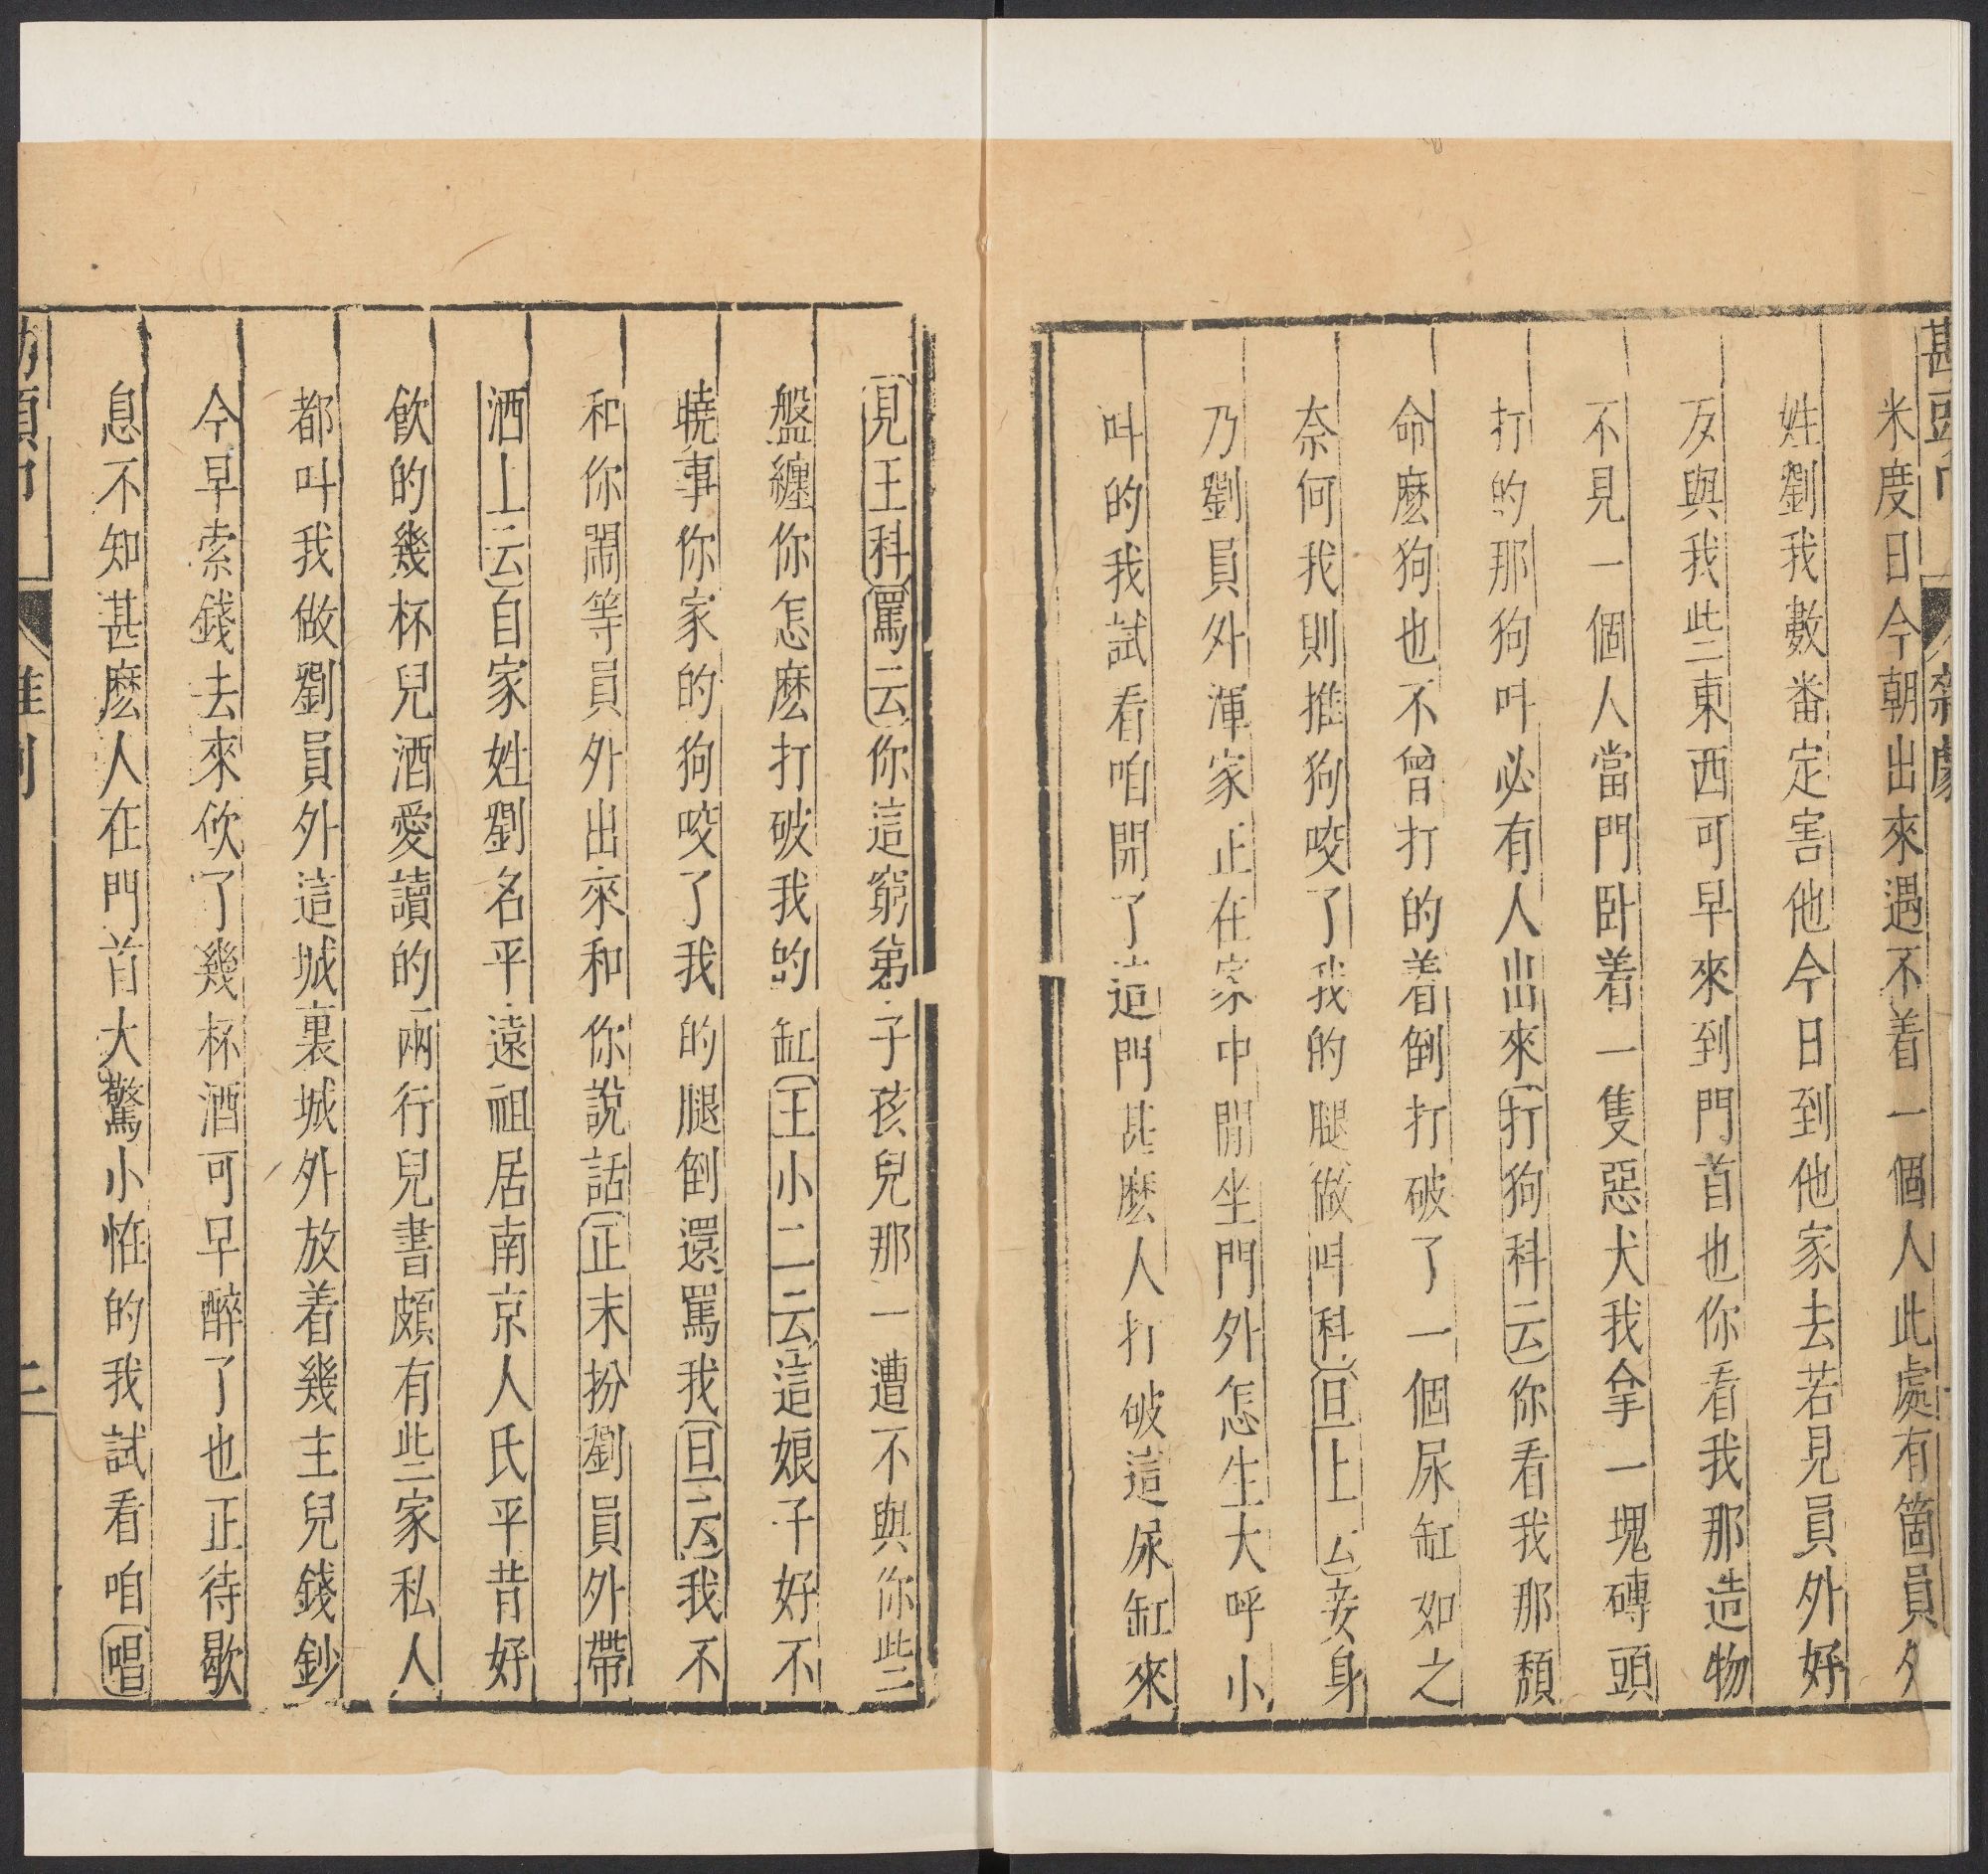 雜劇
米度日今朝出來遇不着一個人此處有箇員
姓劉我數番定害他今日到他家去若見員外好
反與我些東西可早來到門首也你看我那造物
不見一個人當門卧着一隻惡犬我拿一塊磚頭
打的那狗叫必有人出來打狗科云你看我那頹
命麽狗也不曾打的着倒打破了一個尿缸如之
奈何我則推狗咬了我的腿做叫科旦上云妾身
乃劉員外渾家正在家中閒坐門外怎生大呼小
叫的我試看咱開了這門甚麽人打破這尿缸來
見王科罵云你這窮弟子孩兒那一遭不與你些
盤纏你怎麽打破我的缸王小二云這娘子好不
曉事你家的狗咬了我的腿倒還罵我旦云我不
和你鬧等員外出來和你說話正末扮劉員外帶
酒上云自家姓劉名平遠祖居南京人氏平昔好
飲的幾杯兒酒愛讀的兩行兒書頗有些家私人
都叫我做劉員外這城裏城外放着幾主兒錢鈔
今早索錢去來飲了幾杯酒可早醉了也正待歇
息不知甚麽人在門首大驚小恠的我試看咱唱